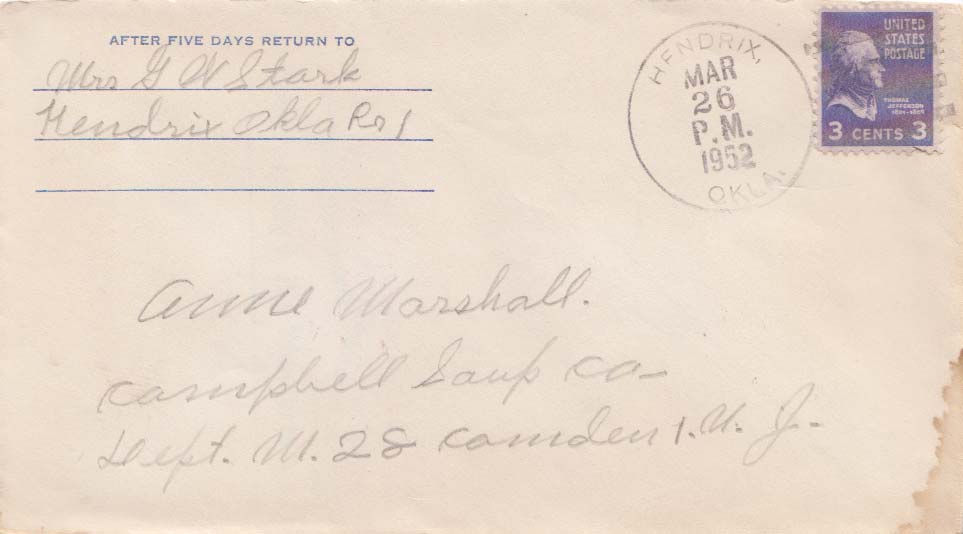 AFTER FIVE DAYS RETURN TO
Mrs G W Stark
Hendrix Okla Rt 1
HENDRIX,
MAR
26
P.M.
1952
OKLA.
UNITED
STATES
POSTAGE
THOMAS
JEFFERSON
1801-1809
3 CENTS 3
Anne Marshall.
Campbell Soup Co-
Dept. M. 28 Camden 1. N. J.-